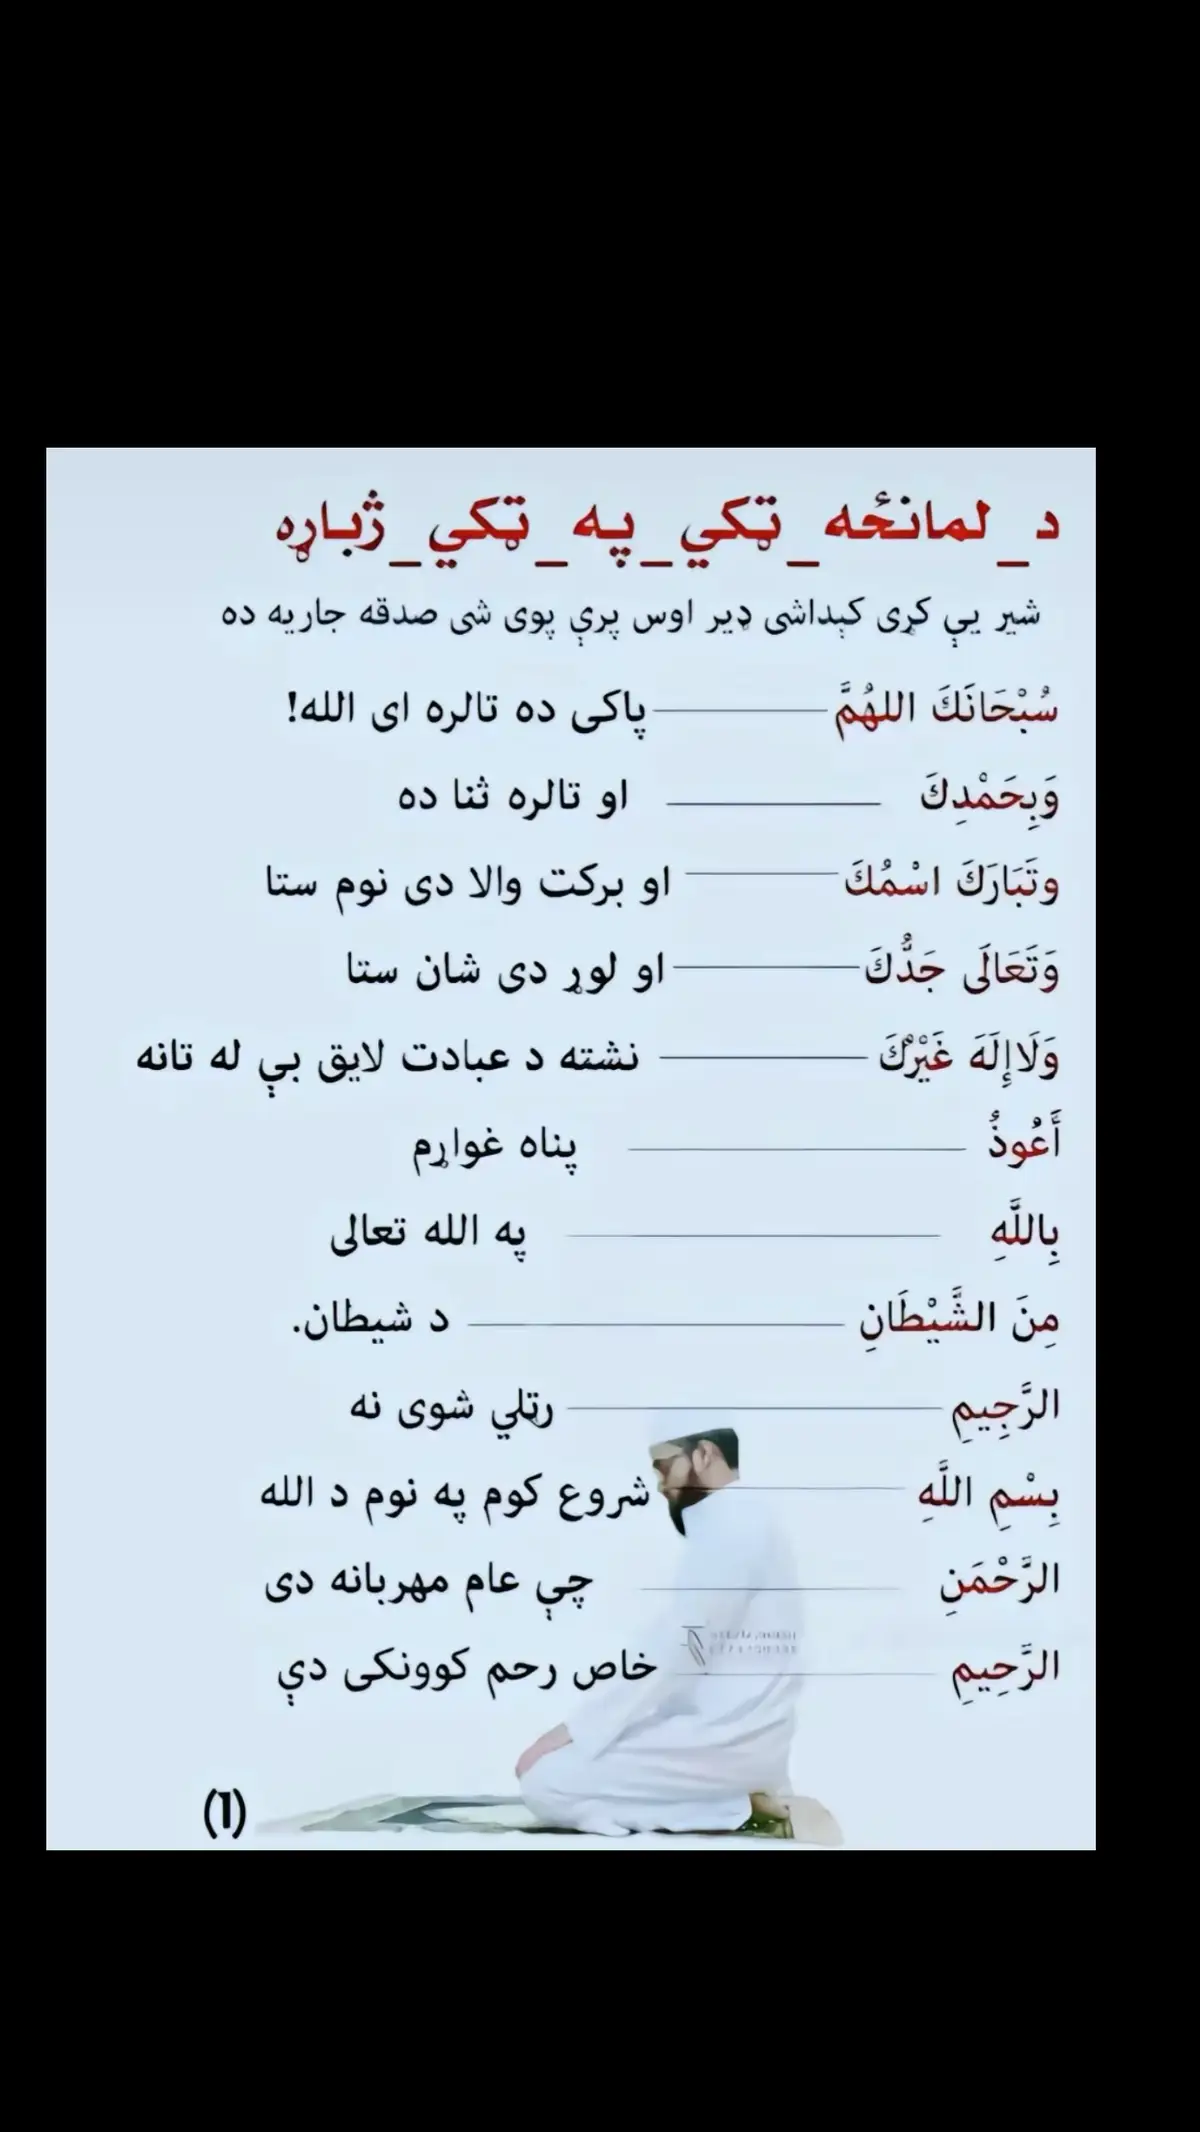 د_لمانځه_ټکي_په_ټکي_ژباړه
شیر یې کړی کېداشی ډیر اوس پرې پوی شی صدقه جاریه ده
سُبْحَانَكَ اللهُمَّ ـــــــ پاکی ده تالره ای الله!
وَبِحَمْدِكَ ـــــــ او تالره ثنا ده
وتَبَارَكَ اسْمُكَ ـــــــ او برکت والا دی نوم ستا
وَتَعَالَى جَدُّكَ ـــــــ او لوړ دی شان ستا
وَلَاإِلَهَ غَيْرُكَ ـــــــ نشته د عبادت لایق بې له تانه
أَعُوذُ ـــــــ پناه غواړم
بِاللَّهِ ـــــــ په الله تعالی
مِنَ الشَّيْطَانِ ـــــــ د شیطان.
الرَّجِيمِ ـــــــ رټلي شوی نه
بِسْمِ اللَّهِ ـــــــ شروع کوم په نوم د الله
الرَّحْمَنِ ـــــــ چې عام مهربانه دی
الرَّحِيمِ ـــــــ خاص رحم کوونکی دې
(1)